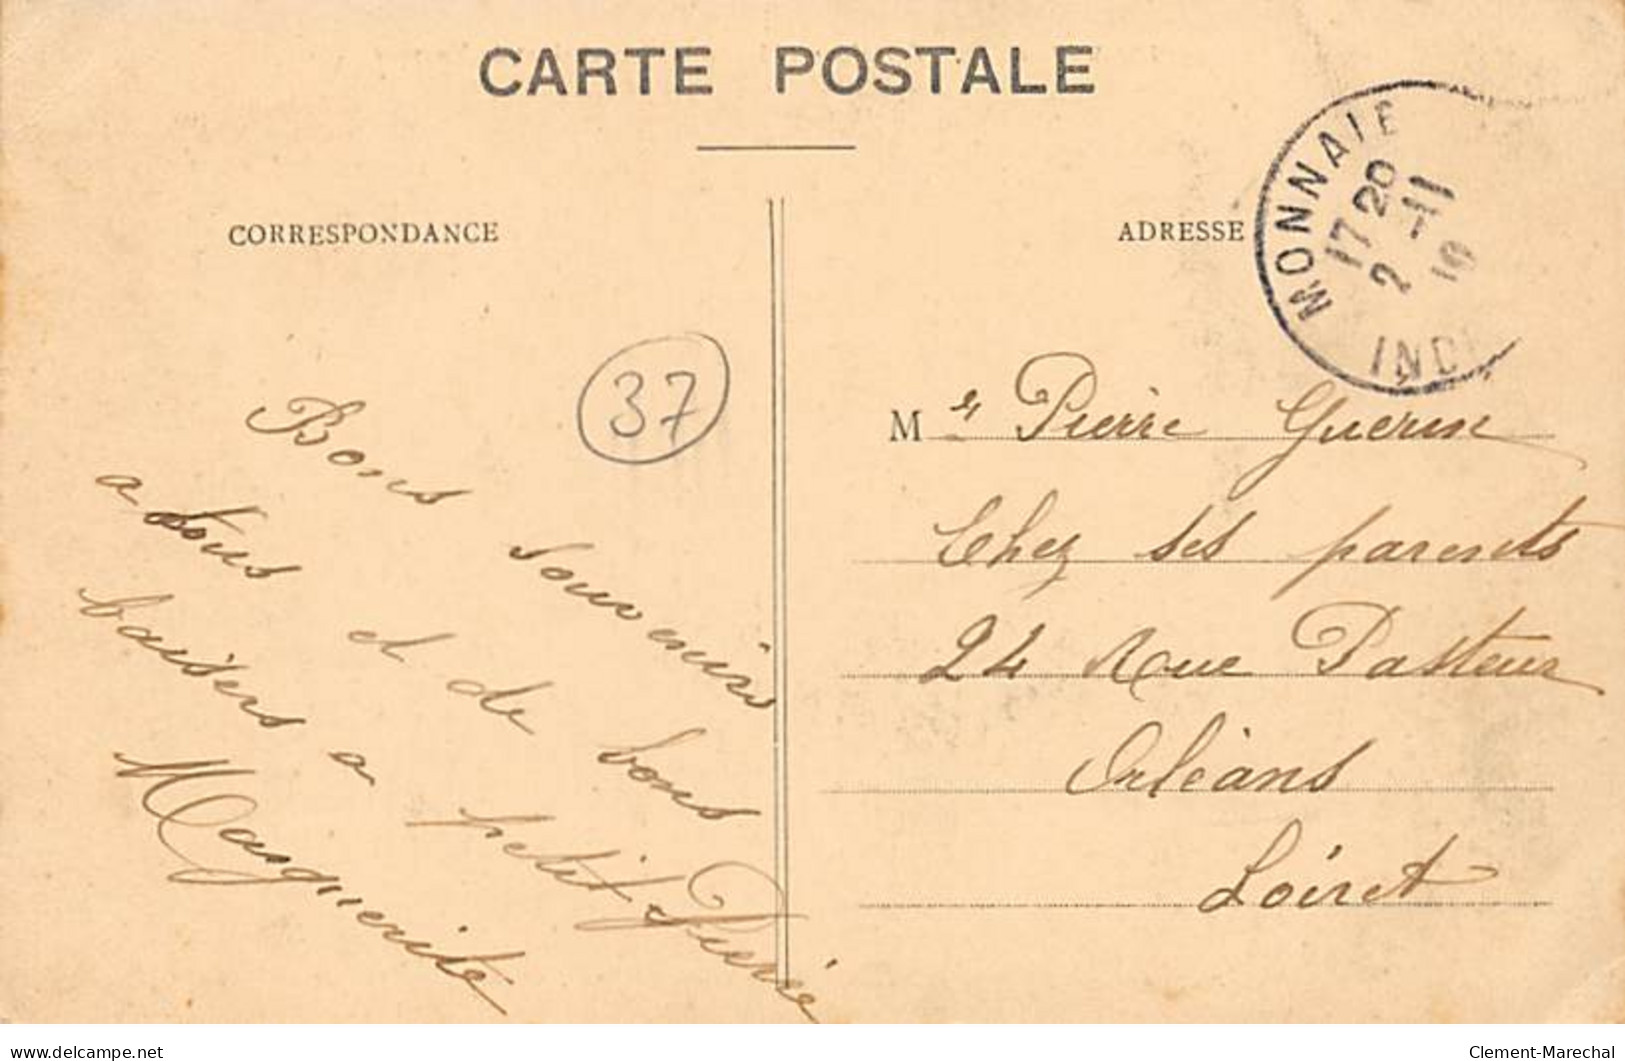 CARTE POSTALE
CORRESPONDANCE
ADRESSE
MONNAIE
17 20
2 -11
INDRE
37
Bons souvenirs
a tous et de bons
baisers a petit Pierre
Marguerite
Mr Pierre Guerin
Chez ses parents
24 Rue Pasteur
Orléans
Loiret
delcampe.net
Clement-Marechal